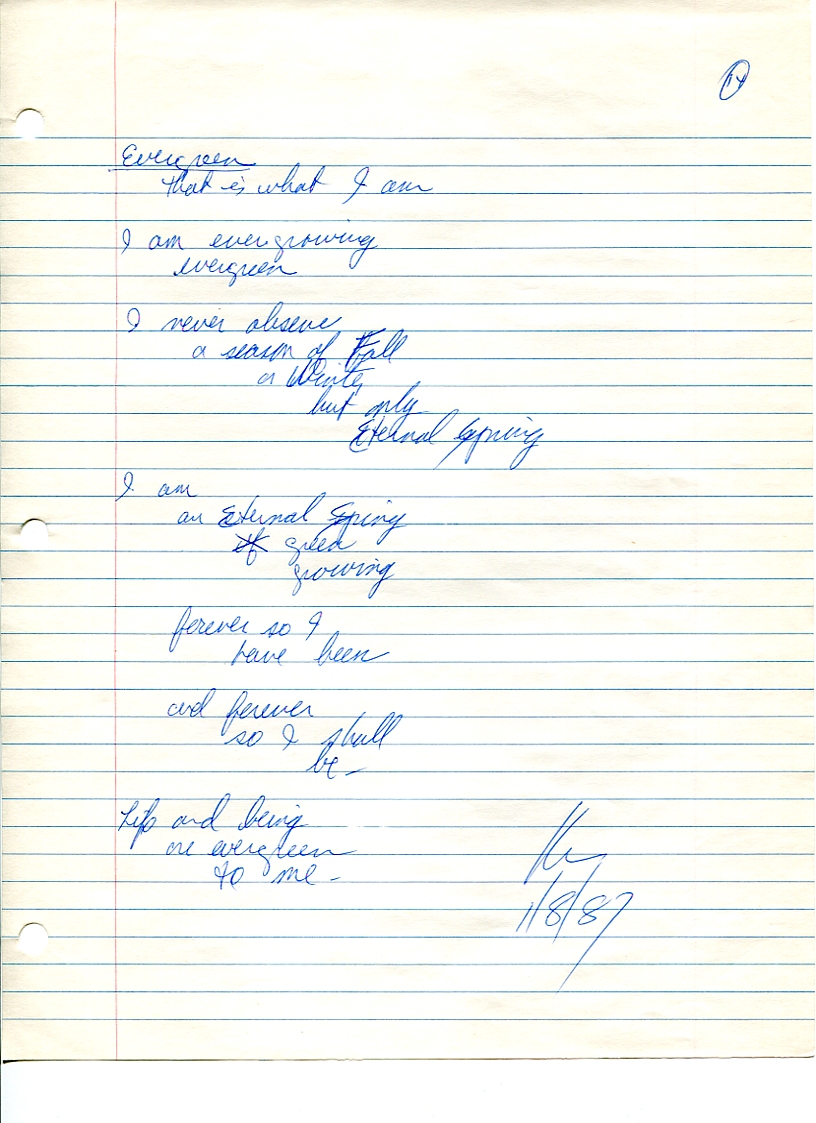 14
Evergreen
that is what I am
I am evergrowing
evergreen
I never observe
a season of Fall
or Winter
but only
Eternal Spring
I am
an Eternal Spring
of green
growing
forever so I
have been
and forever
so I shall
be -
Life and being
are evergreen
to me -
1/8/87